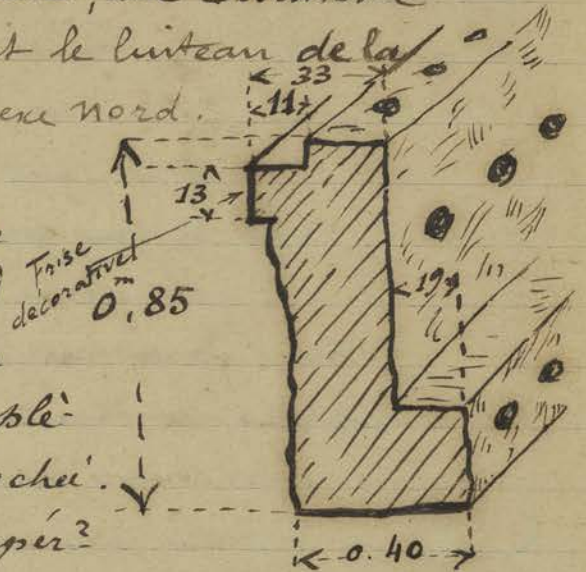 t le linteau de la
33
exe nord.
11
13
Frise
décorative
0,85
m
19
slé-
ché.
pér?
0.40